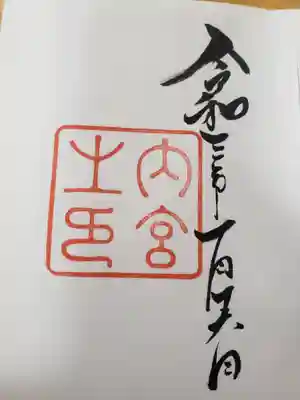 令和三年一月
内宮
之印